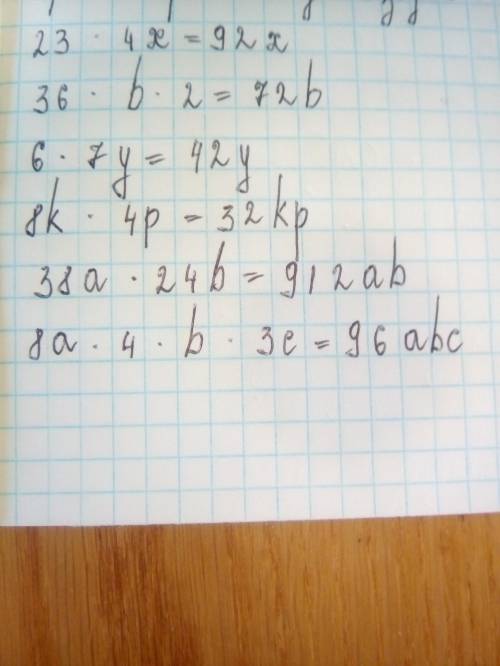 23 · 4x = 92x
36 · b · 2 = 72b
6 · 7y = 42y
8k · 4p = 32kp
38a · 24b = 912ab
8a · 4 · b · 3c = 96abc